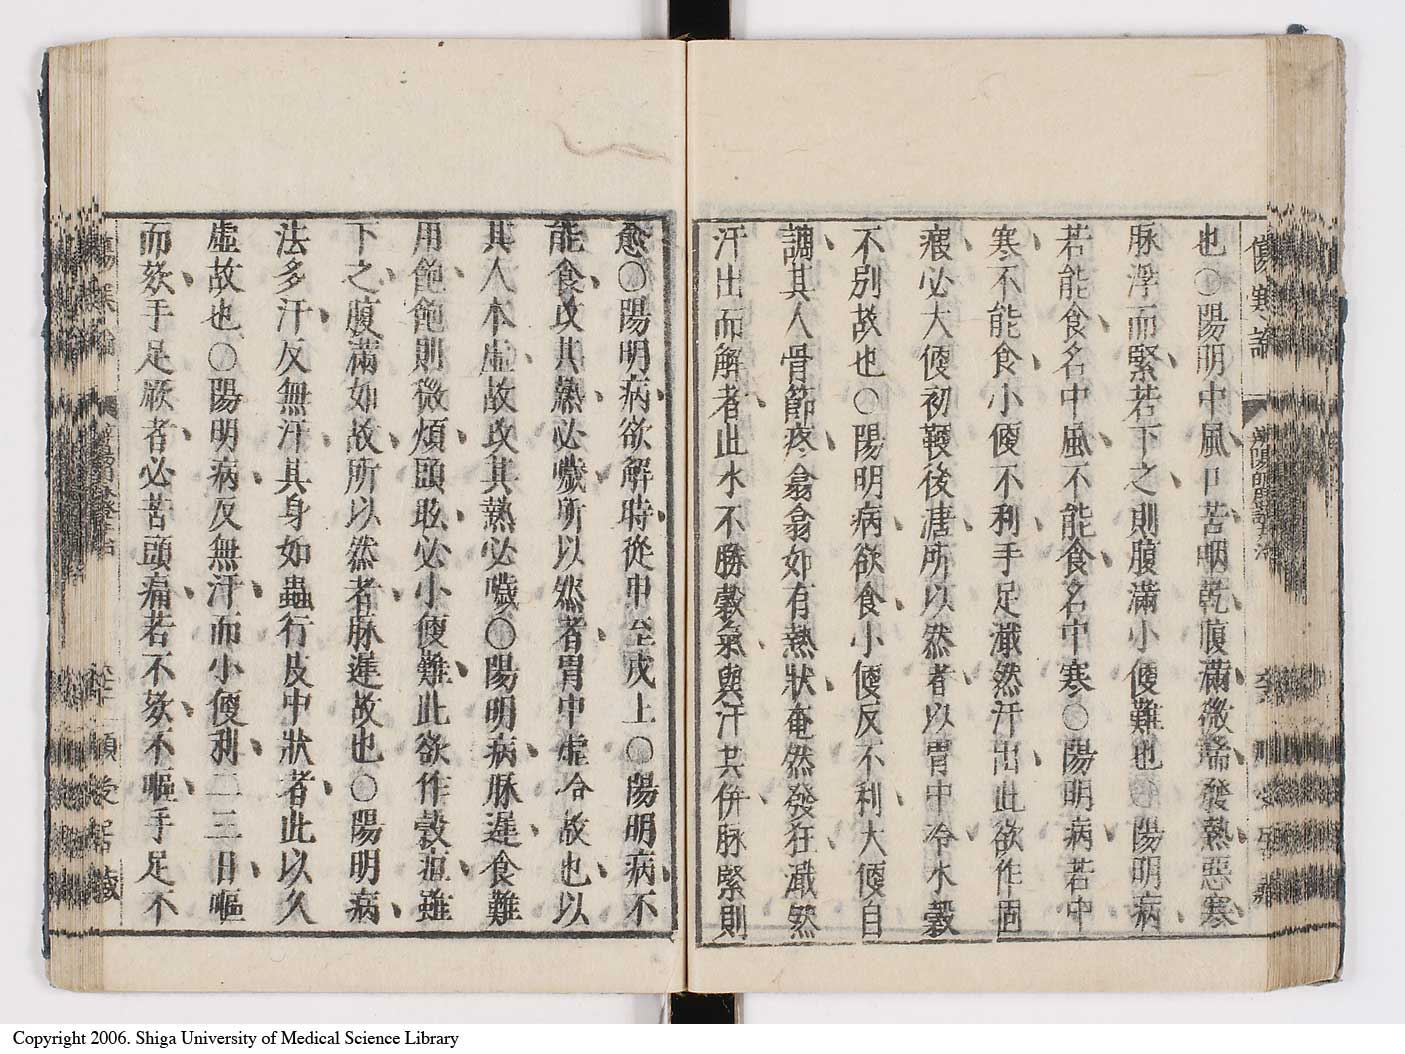 傷寒論
也○陽明中風口苦咽乾腹滿微喘發熱惡寒
脉浮而緊若下之則腹滿小便難也○陽明病
若能食名中風不能食名中寒○陽明病若中
寒不能食小便不利手足濈然汗出此欲作固
瘕必大便初鞕後溏所以然者以胃中冷水穀
不別故也○陽明病欲食小便反不利大便自
調其人骨節疼翕翕如有熱狀奄然發狂濈然
汗出而解者此水不勝穀氣與汗共併脉緊則
愈○陽明病欲解時從申至戌上○陽明病不
能食攻其熱必噦所以然者胃中虛冷故也以
其人本虛故攻其熱必噦○陽明病脉遲食難
用飽飽則微煩頭眩必小便難此欲作穀疸雖
下之腹滿如故所以然者脉遲故也○陽明病
法多汗反無汗其身如蟲行皮中狀者此以久
虛故也○陽明病反無汗而小便利二三日嘔
而欬手足厥者必苦頭痛若不欬不嘔手足不
Copyright 2006. Shiga University of Medical Science Library